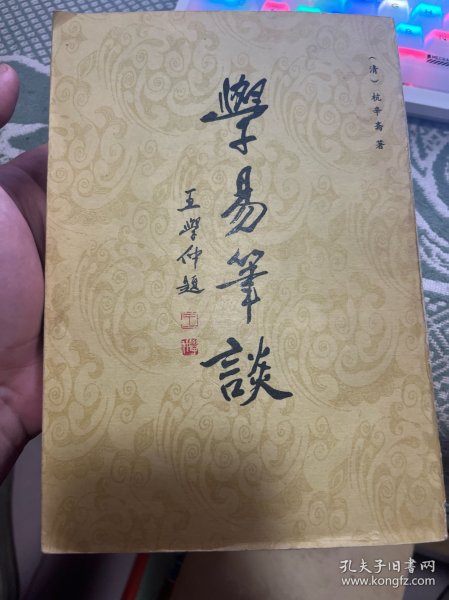 （清）杭辛斋著
學易筆談
王學仲題
孔夫子旧书网
www.kongfz.com